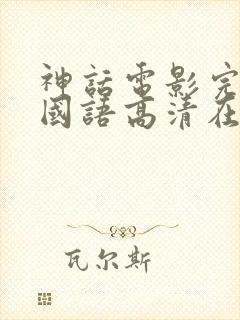 神話電影完
國語高清在
瓦尔斯